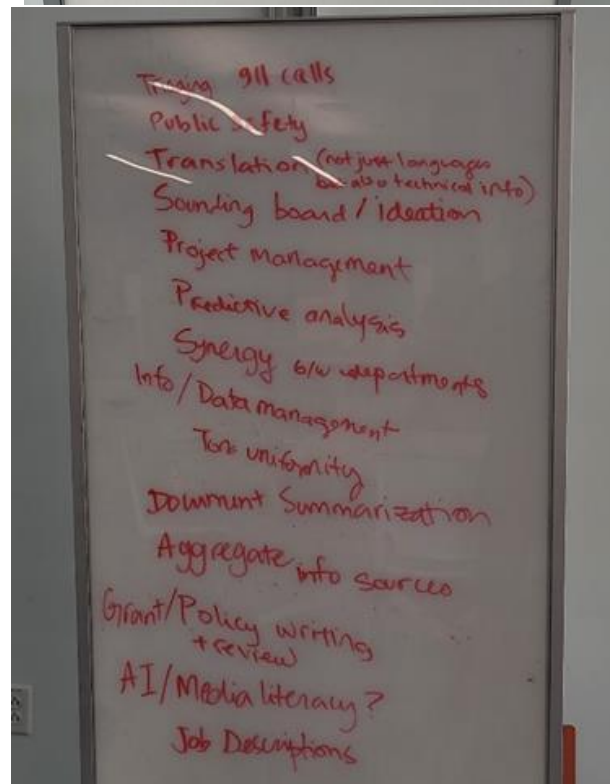 Triaging 911 calls
Public Safety
Translation (not just languages
but also technical info)
Sounding board / ideation
Project management
Predictive analysis
Synergy b/w departments
Info / Data management
Tone uniformity
Document Summarization
Aggregate info sources
Grant/Policy writing
+ review
AI/Media literacy?
Job Descriptions